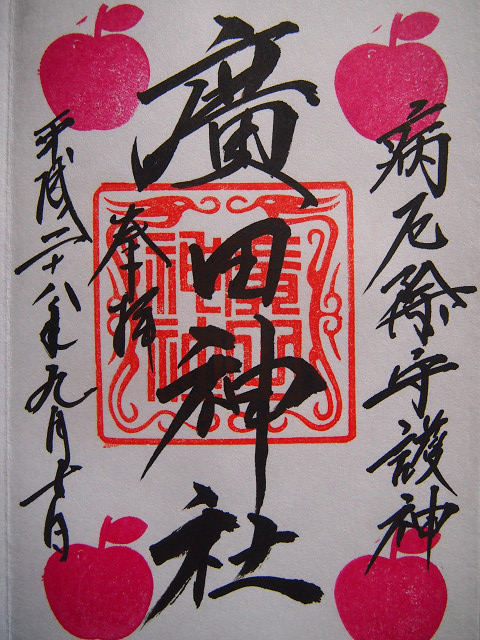 病厄除守護神
廣田神社
奉拝
平成二十八年九月十日
廣田
神社